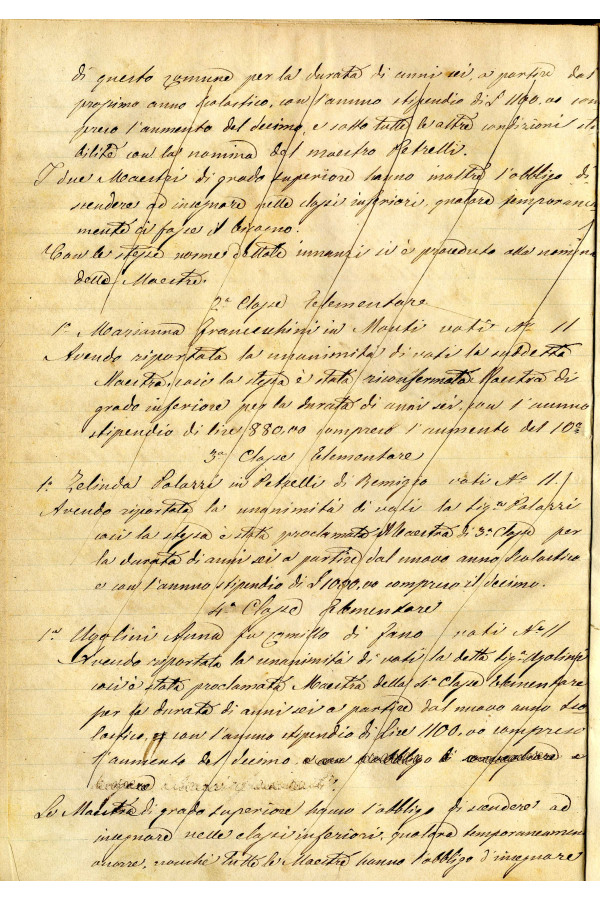 di questo comune per la durata di anni sei, a partire dal
prossimo anno scolastico, con l'annuo stipendio di £ 1100,00 com
preso l'aumento del decimo, e sotto tutte le altre condizioni sta
bilite con la nomina del maestro Petrelli.
I due Maestri di grado superiore hanno inoltre l'obbligo di
scendere ad insegnare nelle classi inferiori, qualora temporanea
mente ci fosse il bisogno.
Con le stesse norme dettate innanzi si è proceduto alla nomina
delle Maestre.
2ª Classe Elementare
1ª Marianna Franceschini in Monti voti Nº 11
Avendo riportata la unanimità di voti la suddetta
Maestra, così la stessa è stata riconfermata Maestra di
grado inferiore per la durata di anni sei, con l'annuo
stipendio di lire 880,00 compreso l'aumento del 10º
3ª Classe Elementare
1ª Zelinda Palazzi in Petrelli di Remigio voti Nº 11.
Avendo riportata la unanimità di voti la Sigª Palazzi
così la stessa è stata proclamata Maestra di 3ª Classe per
la durata di anni sei a partire dal nuovo anno scolastico
e con l'annuo stipendio di £ 1000,00 compreso il decimo.
4ª Classe Elementare
1ª Ugolini Anna fu Camillo di Fano voti Nº 11
Avendo riportata la unanimità di voti la detta Sigª Ugolini
così è stata proclamata Maestra della 4ª Classe Elementare
per la durata di anni sei a partire dal nuovo anno sco
lastico, e con l'annuo stipendio di Lire 1100,00 compreso
l'aumento del decimo e con obbligo di
Le Maestre di grado superiore hanno l'obbligo di scendere ad
insegnare nelle classi inferiori, qualora temporaneamen
occorre, nonché tutte le Maestre hanno l'obbligo d'insegnare